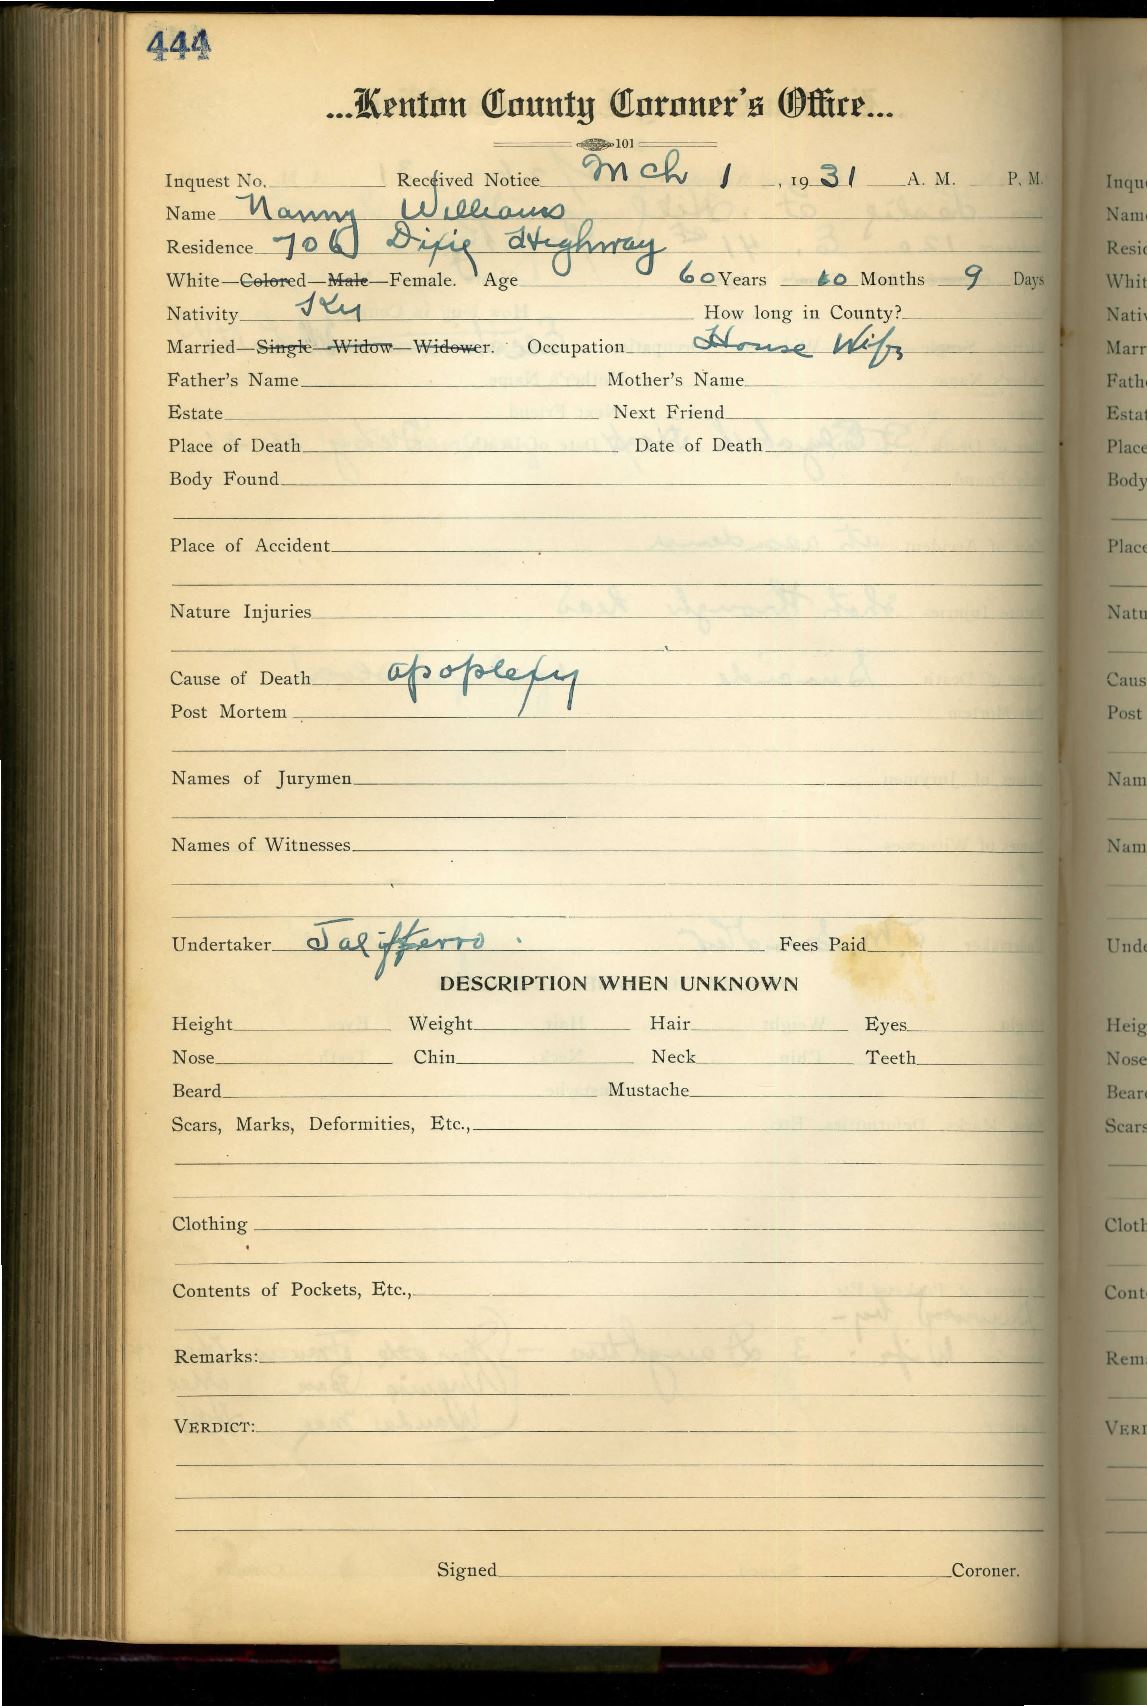 444
...Kenton County Coroner's Office...
101
Inquest No. Received Notice Mch 1, 1931 A. M. P. M.
Name Nanny Williams
Residence 706 Dixie Highway
White—Colored—Male—Female. Age 60 Years 10 Months 9 Days
Nativity Ky How long in County?
Married—Single—Widow—Widower. Occupation House Wife
Father's Name Mother's Name
Estate Next Friend
Place of Death Date of Death
Body Found
Place of Accident
Nature Injuries
Cause of Death apoplexy
Post Mortem
Names of Jurymen
Names of Witnesses
Undertaker Taliferro Fees Paid
DESCRIPTION WHEN UNKNOWN
Height Weight Hair Eyes
Nose Chin Neck Teeth
Beard Mustache
Scars, Marks, Deformities, Etc.,
Clothing
Contents of Pockets, Etc.,
Remarks:
VERDICT:
Signed Coroner.